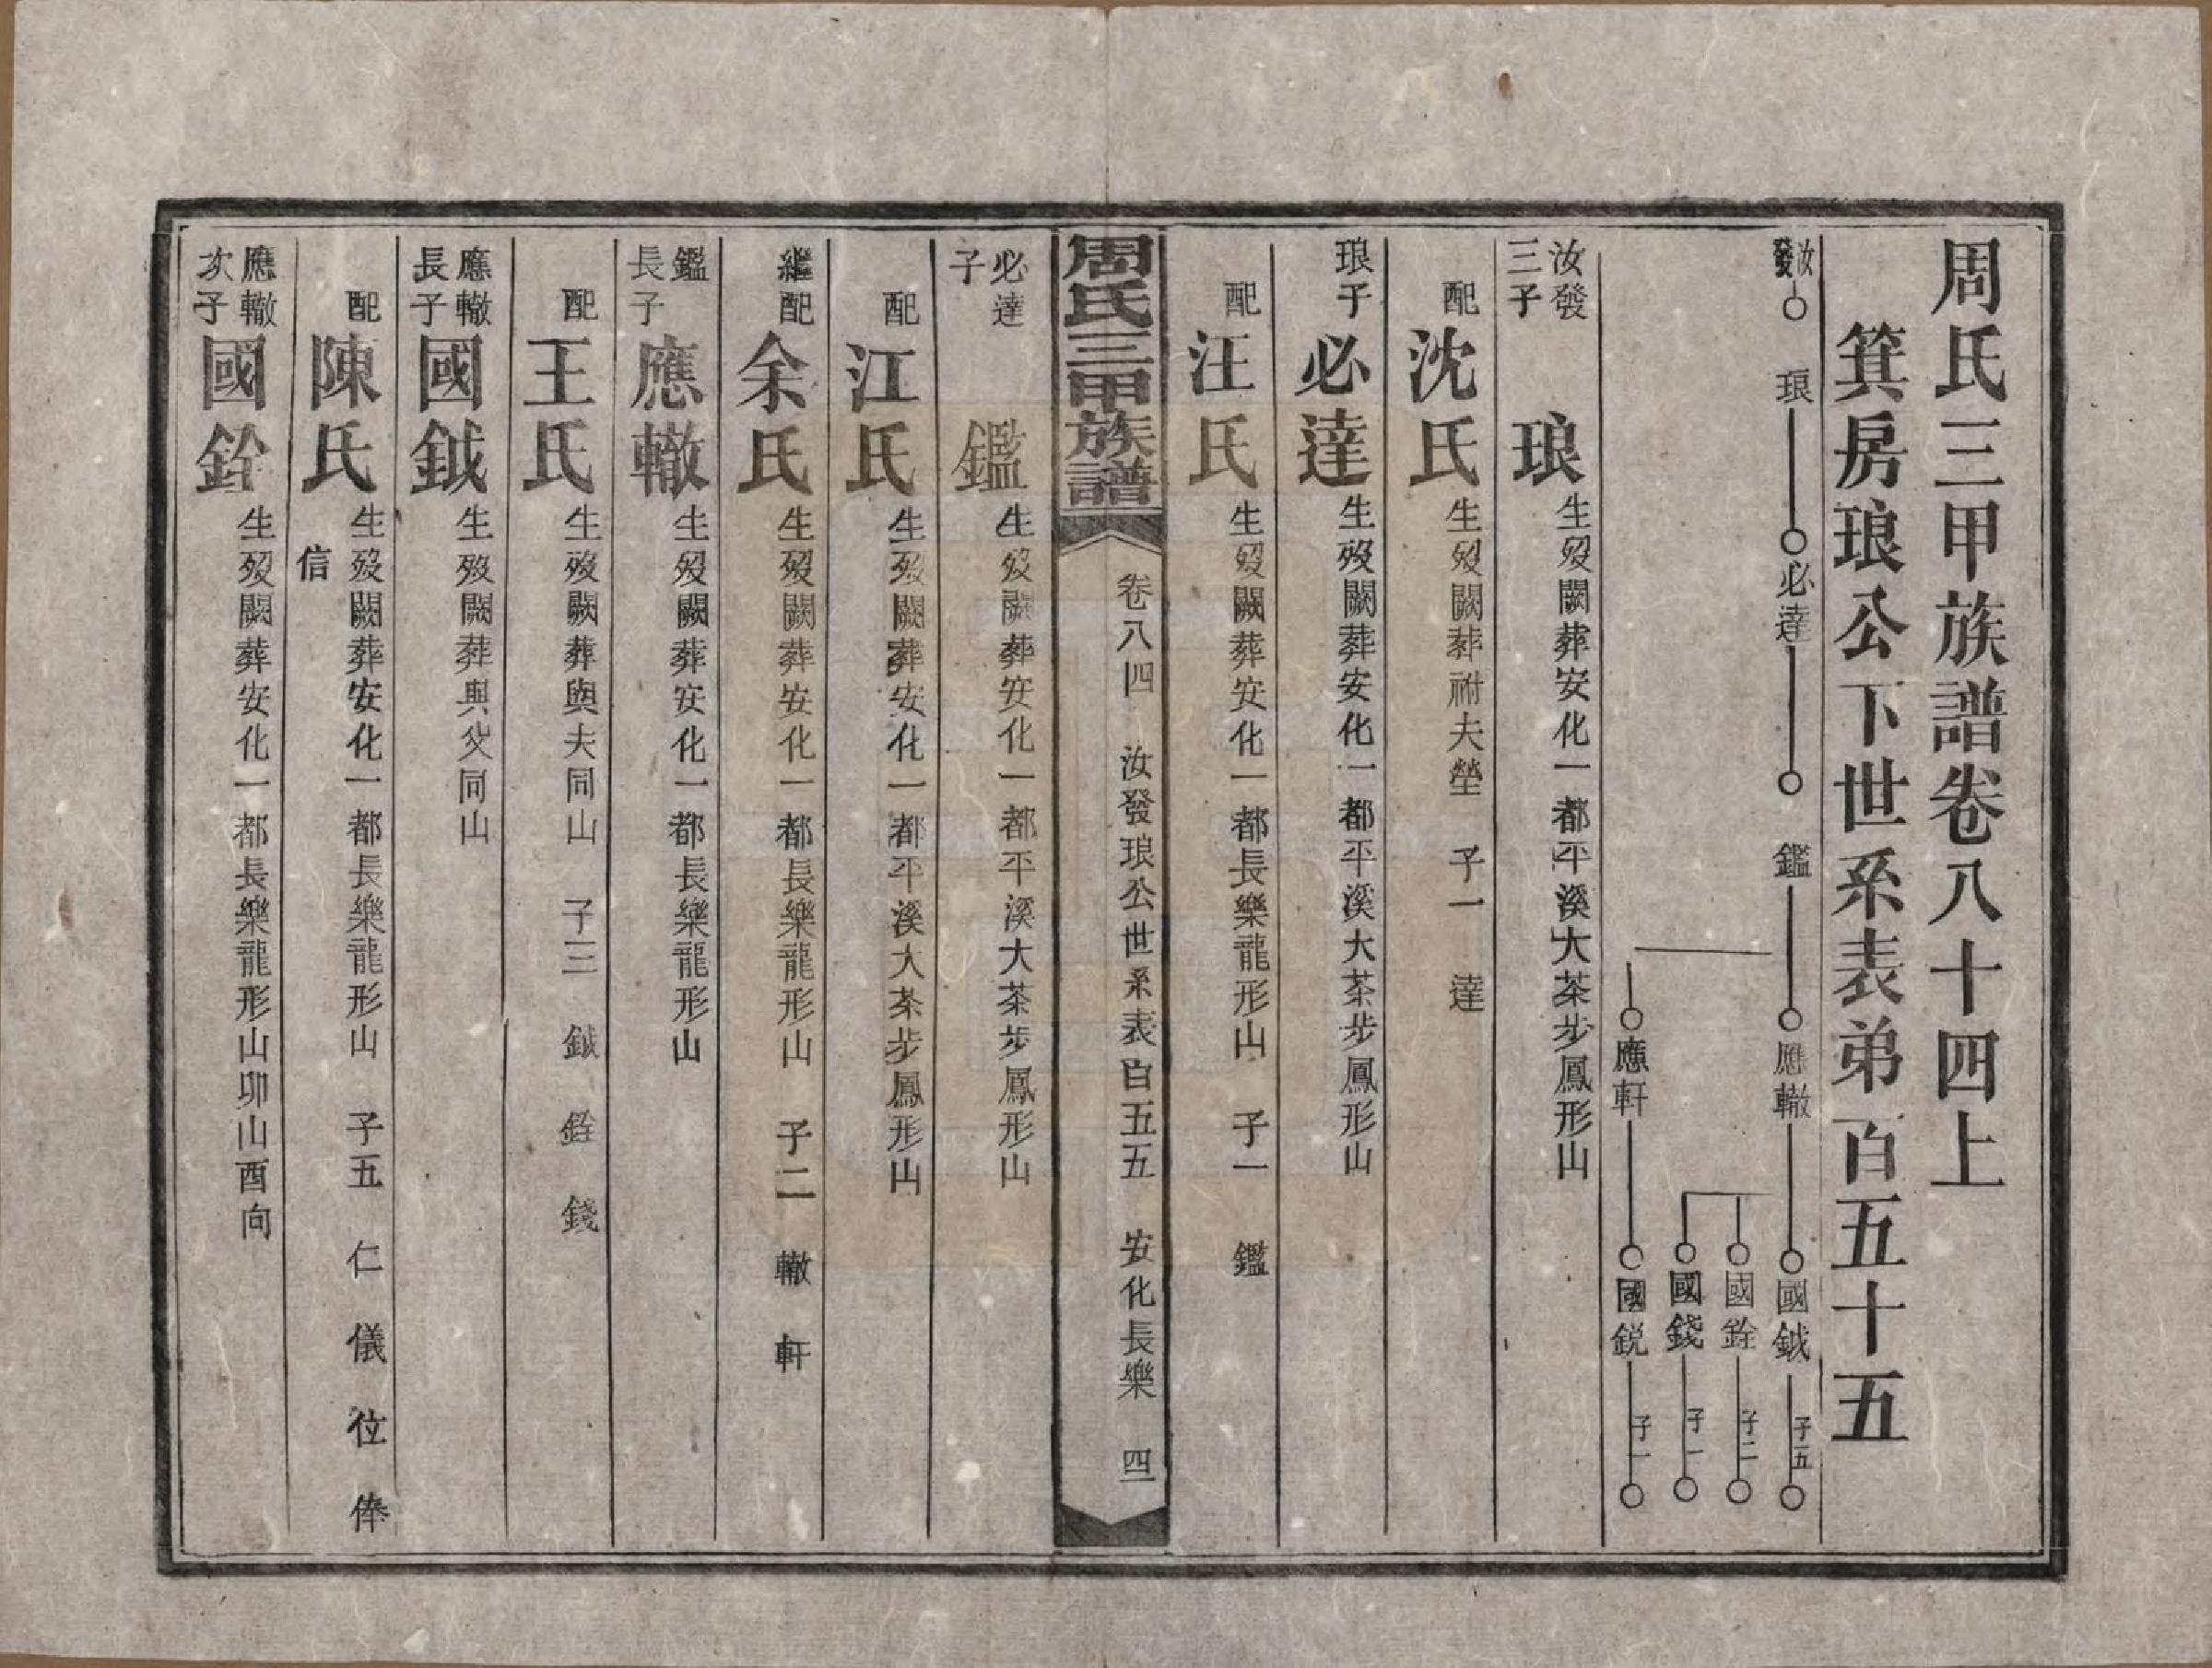 周氏三甲族譜卷八十四上
箕房琅公下世系表弟百五十五
汝發 琅 必達 鑑 應轍 國鉞 子五
國銓 子二
國錢 子一
應軒 國銳 子一
汝發三子 琅 生歿闕葬安化一都平溪大茶步鳳形山
配沈氏 生歿闕葬祔夫塋 子一 達
琅子 必達 生歿闕葬安化一都平溪大茶步鳳形山
配汪氏 生歿闕葬安化一都長樂龍形山 子一 鑑
周氏三甲族譜 卷八四 汝發琅公世系表百五五 安化長樂 四
必達子 鑑 生歿闕葬安化一都平溪大茶步鳳形山
配江氏 生歿闕葬安化一都平溪大茶步鳳形山
繼配余氏 生歿闕葬安化一都長樂龍形山 子二 轍 軒
鑑長子 應轍 生歿闕葬安化一都長樂龍形山
配王氏 生歿闕葬與夫同山 子三 鉞 銓 錢
應轍長子 國鉞 生歿闕葬與父同山
配陳氏 生歿闕葬安化一都長樂龍形山 子五 仁 儀 位 俸
信
應轍次子 國銓 生歿闕葬安化一都長樂龍形山卯山酉向